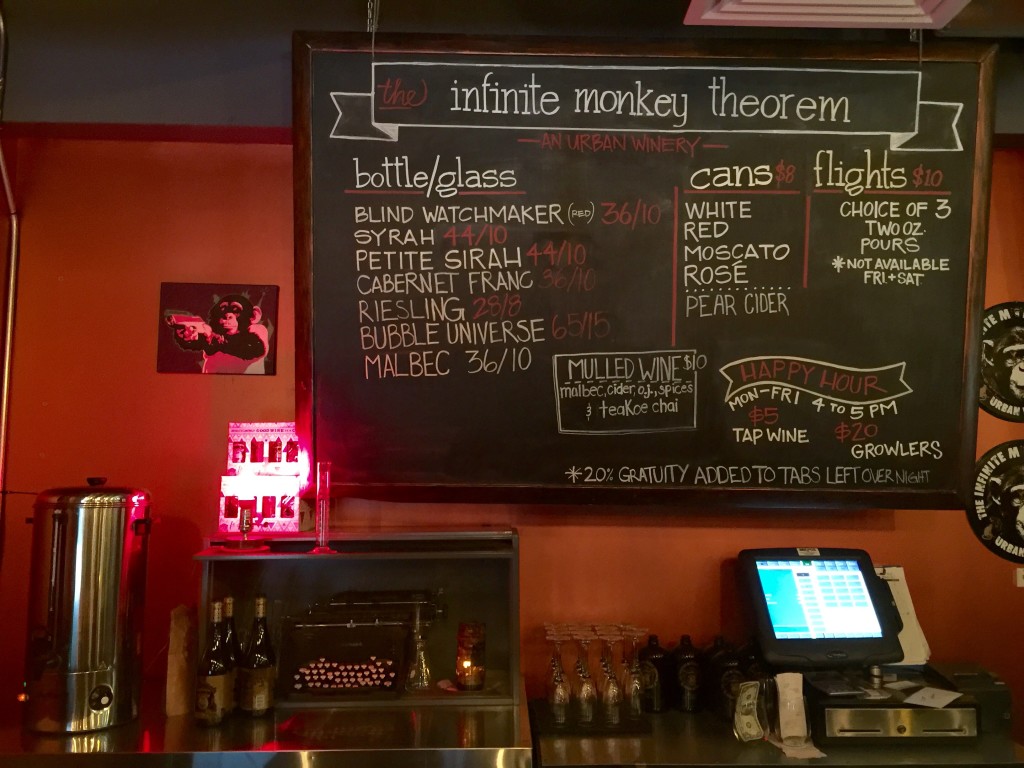 the infinite monkey theorem
—AN URBAN WINERY—
bottle/glass
BLIND WATCHMAKER (RED) 36/10
SYRAH 44/10
PETITE SIRAH 44/10
CABERNET FRANC 36/10
RIESLING 28/8
BUBBLE UNIVERSE 65/15
MALBEC 36/10
cans $8
WHITE
RED
MOSCATO
ROSÉ
PEAR CIDER
flights $10
CHOICE OF 3
TWO OZ.
POURS
*NOT AVAILABLE
FRI + SAT
MULLED WINE $10
malbec, cider, o.j., spices
& teakoe chai
HAPPY HOUR
MON-FRI 4 to 5 PM
$5
TAP WINE
$20
GROWLERS
*20% GRATUITY ADDED TO TABS LEFT OVERNIGHT
THE INFINITE M
URBAN
THE INFINITE M
URBAN